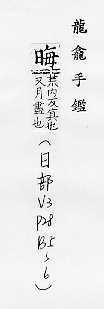 龍龕手鑑
晦 荒內反冥也
又月盡也
(日部
V3
P28
B5
~6)